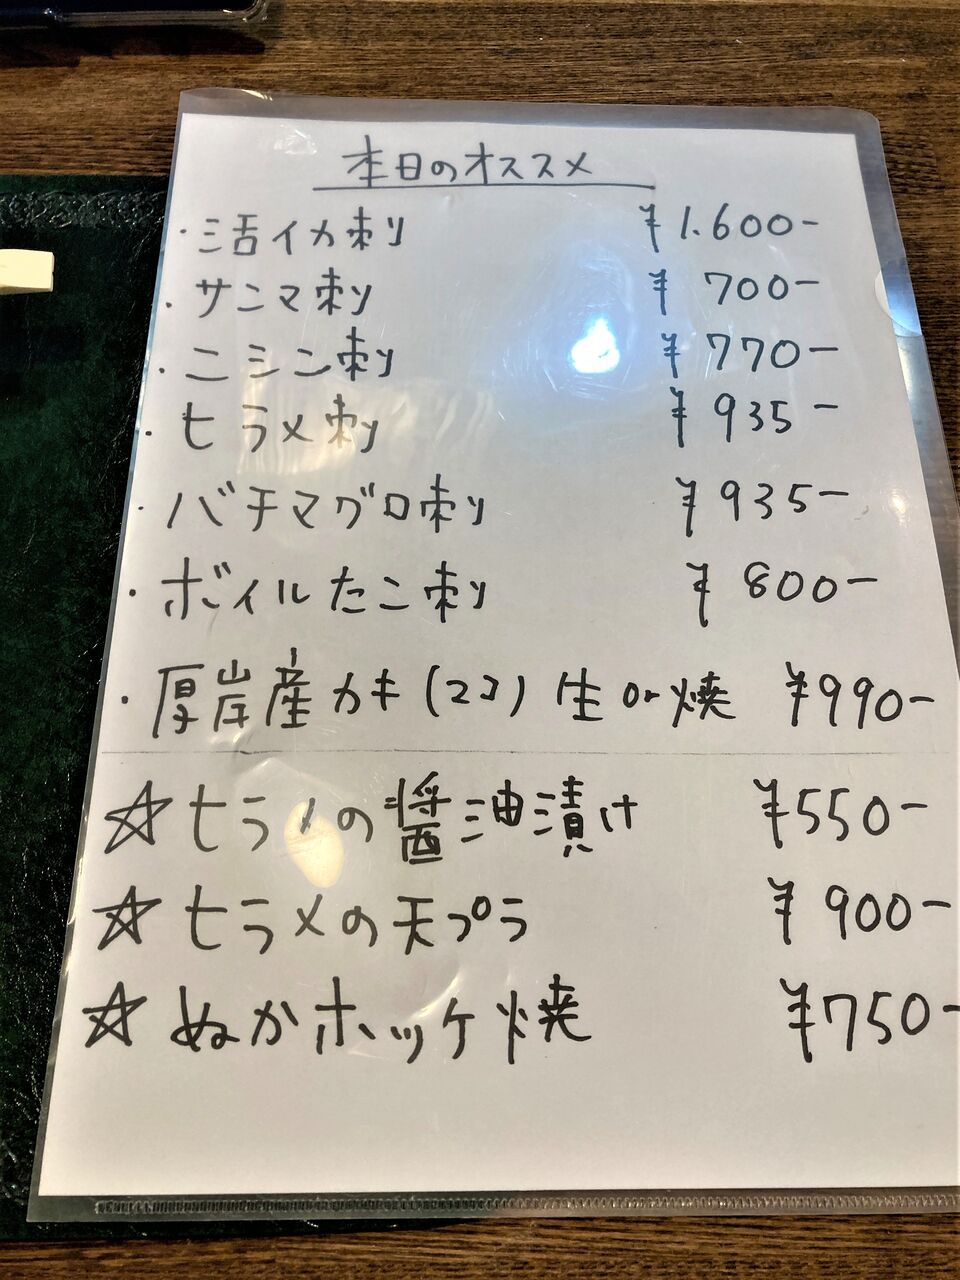 本日のオススメ
・活イカ刺り ¥1.600-
・サンマ刺り ¥700-
・ニシン刺り ¥770-
・ヒラメ刺り ¥935-
・バチマグロ刺り ¥935-
・ボイルたこ刺り ¥800-
・厚岸産カキ(2コ)生or焼 ¥990-
☆ヒラメの醤油漬け ¥550-
☆ヒラメの天プラ ¥900-
☆ぬかホッケ焼 ¥750-